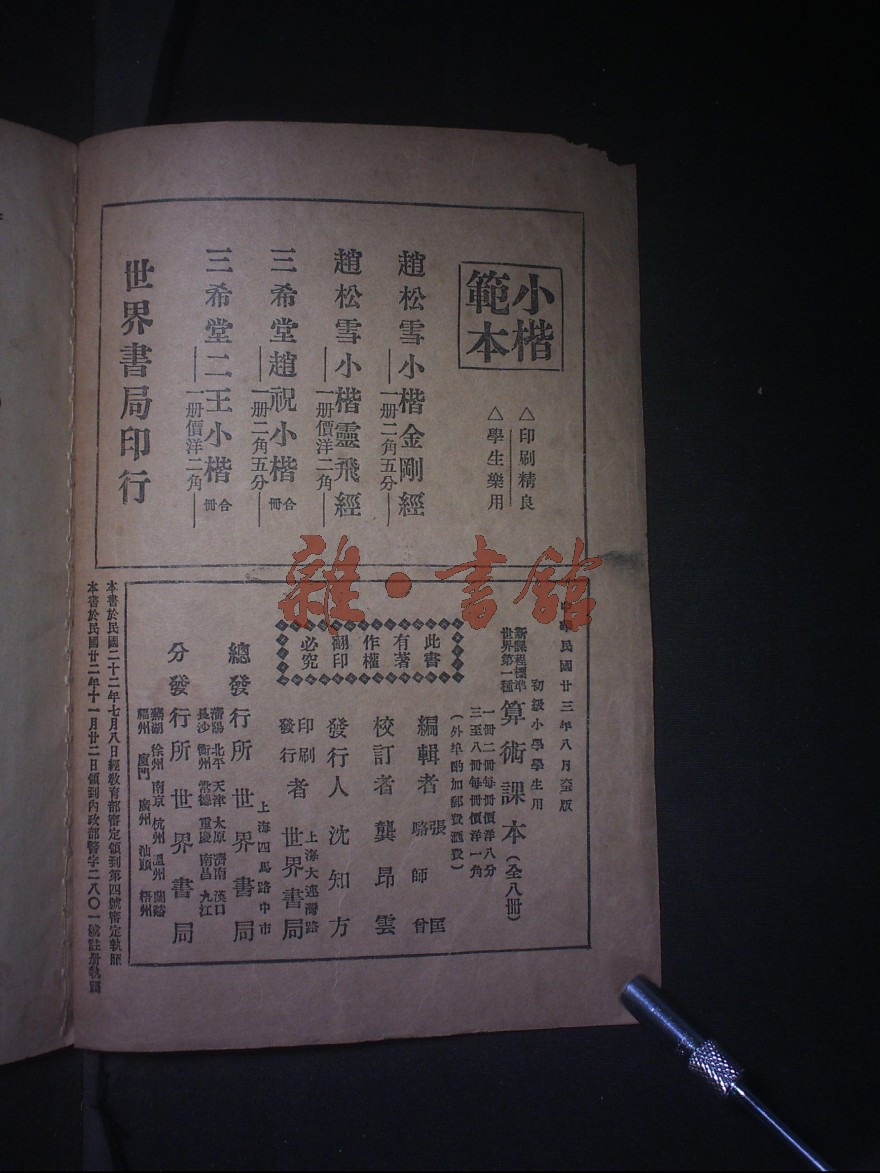 小楷
範本
△印刷精良
△學生樂用
趙松雪小楷金剛經
一册二角五分
趙松雪小楷靈飛經
一册價洋二角
三希堂趙祝小楷合冊
一册二角五分
三希堂二王小楷合冊
一册價洋二角
世界書局印行
雜·書館
中華民國廿三年八月 版
初級小學學生用
新課程標準
世界第一種
算術課本(全八冊)
一冊二冊每冊價洋八分
三至八冊每冊價洋一角
(外埠酌加郵費匯費)
此書
有著
作權
翻印
必究
編輯者 張匡
駱師曾
校訂者 龔昂雲
發行人 沈知方
印刷
發行
者 世界書局
上海大連灣路
上海四馬路中市
總發行所 世界書局
瀋陽 北平 天津 太原 濟南 漢口
長沙 衡州 常德 重慶 南昌 九江
分發行所 世界書局
蕪湖 徐州 南京 杭州 溫州 蘭谿
福州 廈門 廣州 汕頭 梧州
本書於民國二十二年七月八日經教育部審定領到第四號審定執照
本書於民國廿二年十一月廿二日領到內政部警字二八〇一號註册執照